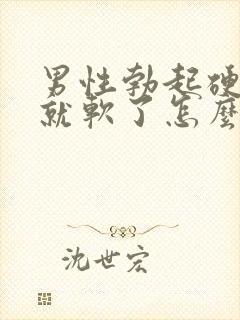 男性勃起硬
就軟了怎麼
沈世宏